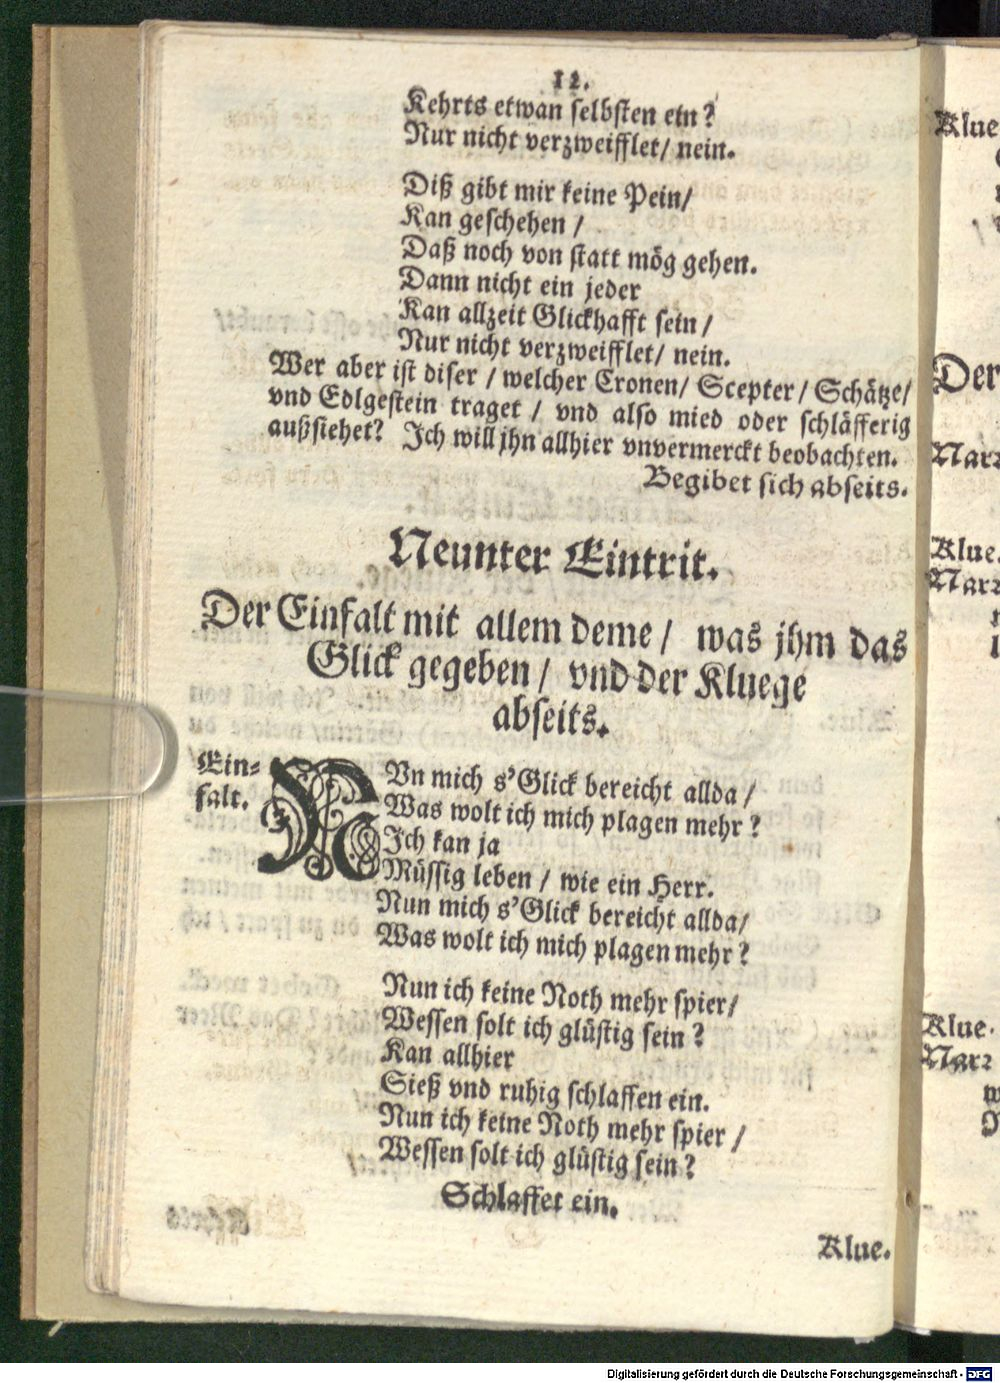 12.
Kehrts etwan selbsten ein?
Nur nicht verzweifflet/ nein.
Diß gibt mir keine Pein/
Kan geschehen /
Daß noch von statt mög gehen.
Dann nicht ein jeder
Kan allzeit Glickhafft sein /
Nur nicht verzweifflet/ nein.
Wer aber ist diser / welcher Cronen/ Scepter/ Schätze/
vnd Edlgestein traget / vnd also mied oder schläfferig
außsiehet? Ich will jhn allhier vnvermerckt beobachten.
Begibet sich abseits.
Neunter Eintrit.
Der Einfalt mit allem deme / was jhm das
Glick gegeben / vnd der Kluege
abseits.
Ein-
falt.
NVn mich s'Glick bereicht allda /
Was wolt ich mich plagen mehr?
Ich kan ja
Müssig leben / wie ein Herr.
Nun mich s'Glick bereicht allda/
Was wolt ich mich plagen mehr?
Nun ich keine Noth mehr spier/
Wessen solt ich glüstig sein?
Kan allhier
Sieß vnd ruhig schlaffen ein.
Nun ich keine Noth mehr spier /
Wessen solt ich glüstig sein?
Schlaffet ein.
Klue.
Klue
Der
Narr
Klue.
Narr
Klue.
Narr
Digitalisierung gefördert durch die Deutsche Forschungsgemeinschaft - DFG